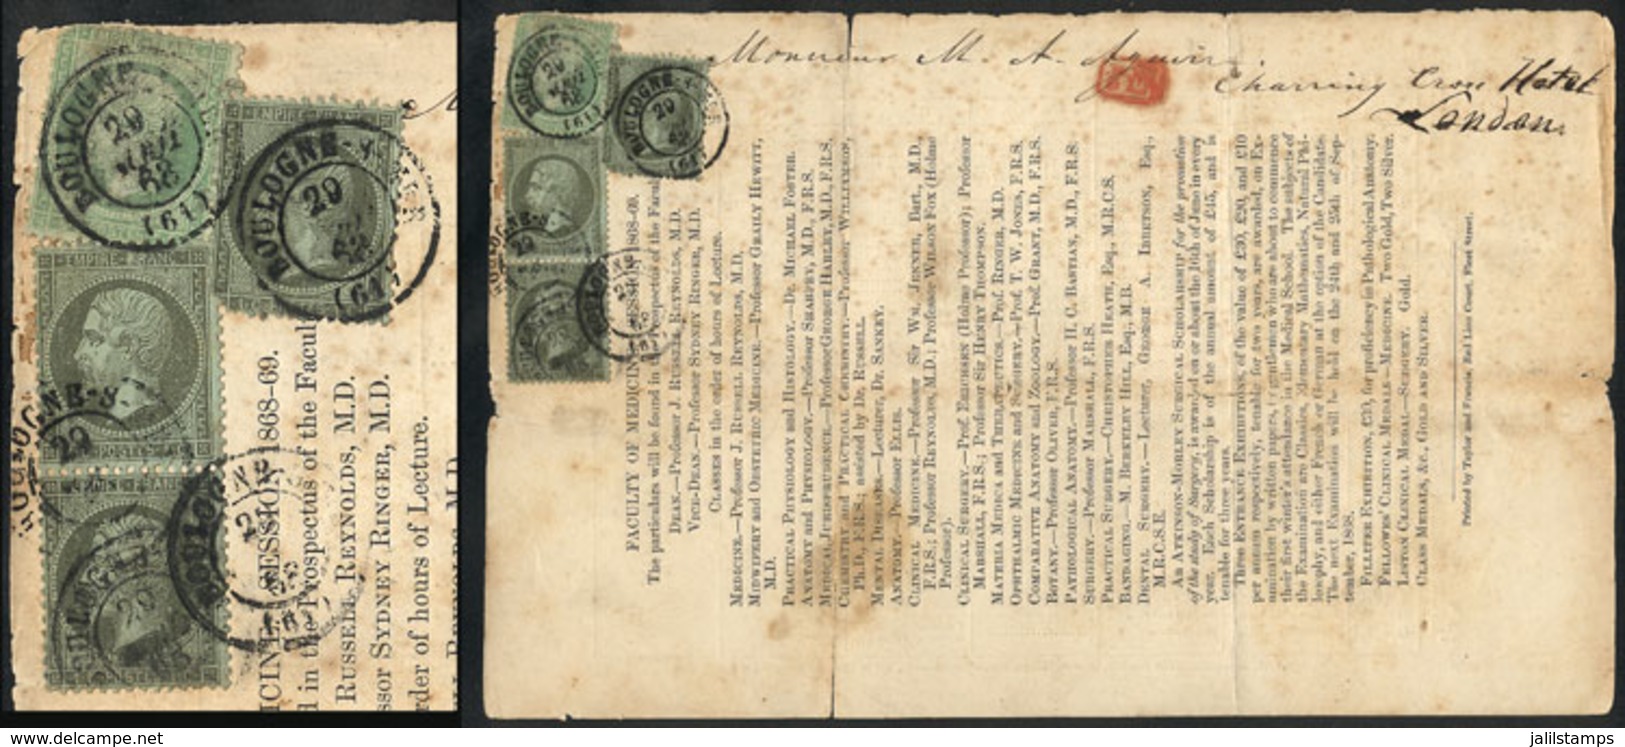 BOULOGNE
29
(61)
EMPIRE FRANC
BOULOGNE-S
29
(61)
EMPIRE FRANC
BOULOGNE-S
29
POSTES
BOULOGNE
29
(61)
BOULOGNE
29
ICINE, SESSION 1868-69.
d in the Prospectus of the Facul
RUSSELL REYNOLDS, M.D.
ssor SYDNEY RINGER, M.D.
rder of hours of Lecture.
BOULOGNE
29
(61)
BOULOGNE
29
(61)
Monsieur M. A.
P.D.
Charring Cross Hotel
London.
FACULTY OF MEDICINE, SESSION 1868-69.
The particulars will be found in the Prospectus of the Facul
DEAN.—Professor J. RUSSELL REYNOLDS, M.D.
VICE-DEAN.—Professor SYDNEY RINGER, M.D.
Classes in the order of hours of Lecture.
MEDICINE.—Professor J. RUSSELL REYNOLDS, M.D.
MIDWIFERY and OBSTETRIC MEDICINE.—Professor GRAILY HEWITT,
M.D.
PRACTICAL PHYSIOLOGY and HISTOLOGY.—Dr. MICHAEL FOSTER.
ANATOMY and PHYSIOLOGY.—Professor SHARPEY, M.D., F.R.S.
MEDICAL JURISPRUDENCE.—Professor GEORGE HARLEY, M.D., F.R.S.
CHEMISTRY and PRACTICAL CHEMISTRY.—Professor WILLIAMSON,
Ph.D., F.R.S.; assisted by Dr. RUSSELL.
MENTAL DISEASES.—Lecturer, Dr. SANKEY.
ANATOMY.—Professor ELLIS.
CLINICAL MEDICINE.—Professor Sir WM. JENNER, Bart., M.D.,
F.R.S.; Professor REYNOLDS, M.D.; Professor WILSON FOX (Holme
Professor).
CLINICAL SURGERY.—Prof. ERICHSEN (Holme Professor); Professor
MARSHALL, F.R.S.; Professor Sir HENRY THOMPSON.
MATERIA MEDICA and THERAPEUTICS.—Prof. RINGER, M.D.
OPHTHALMIC MEDICINE and SURGERY.—Prof. T. W. JONES, F.R.S.
COMPARATIVE ANATOMY and ZOOLOGY.—Prof. GRANT, M.D., F.R.S.
BOTANY.—Professor OLIVER, F.R.S.
PATHOLOGICAL ANATOMY.—Professor H. C. BASTIAN, M.D., F.R.S.
SURGERY.—Professor MARSHALL, F.R.S.
PRACTICAL SURGERY.—CHRISTOPHER HEATH, Esq., M.R.C.S.
BANDAGING.—M. BERKELEY HILL, Esq., M.B.
DENTAL SURGERY.—Lecturer, GEORGE A. IBBETSON, Esq.,
M.R.C.S.E.
An ATKINSON-MORLEY SURGICAL SCHOLARSHIP for the promotion
of the study of Surgery, is awarded on or about the 16th of June in every
year. Each Scholarship is of the annual amount of £45, and is
tenable for three years.
Three ENTRANCE EXHIBITIONS, of the value of £30, £20, and £10
per annum respectively, tenable for two years, are awarded, on Ex-
amination by written papers, to gentlemen who are about to commence
their first winter's attendance in the Medical School. The subjects of
the Examination are Classics, Elementary Mathematics, Natural Phi-
losophy, and either French or German at the option of the Candidate.
The next Examination will be held on the 24th and 25th of Sep-
tember, 1868.
FILLITER EXHIBITION, £30, for proficiency in Pathological Anatomy.
FELLOWES' CLINICAL MEDALS.—MEDICINE. Two Gold, Two Silver.
LISTON CLINICAL MEDAL.—SURGERY. Gold.
CLASS MEDALS, &c., GOLD AND SILVER.
Printed by Taylor and Francis, Red Lion Court, Fleet Street.
delcampe.net
jalilstamps